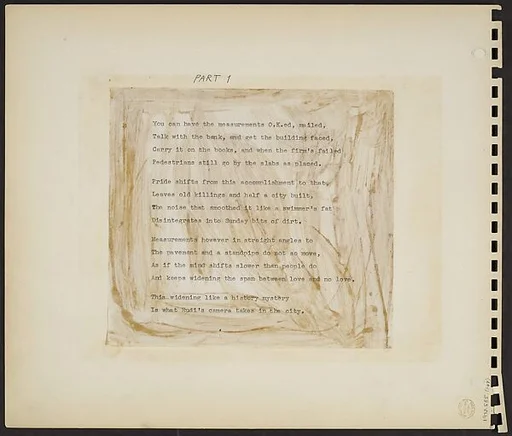 PART 1
You can have the measurements O.K.ed, mailed,
Talk with the bank, and get the building faced,
Carry it on the books, and when the firm's failed
Pedestrians still go by the slabs as placed.
Pride shifts from this accomplishment to that,
Leaves old killings and half a city built,
The noise that smoothed it like a swimmer's fat
Disintegrates into Sunday bits of dirt.
Measurements however in straight angles to
The pavement and a standpipe do not so move,
As if the mind shifts slower than people do
And keeps widening the span between love and no love.
This widening like a history mystery
Is what Rudi's camera takes in the city.